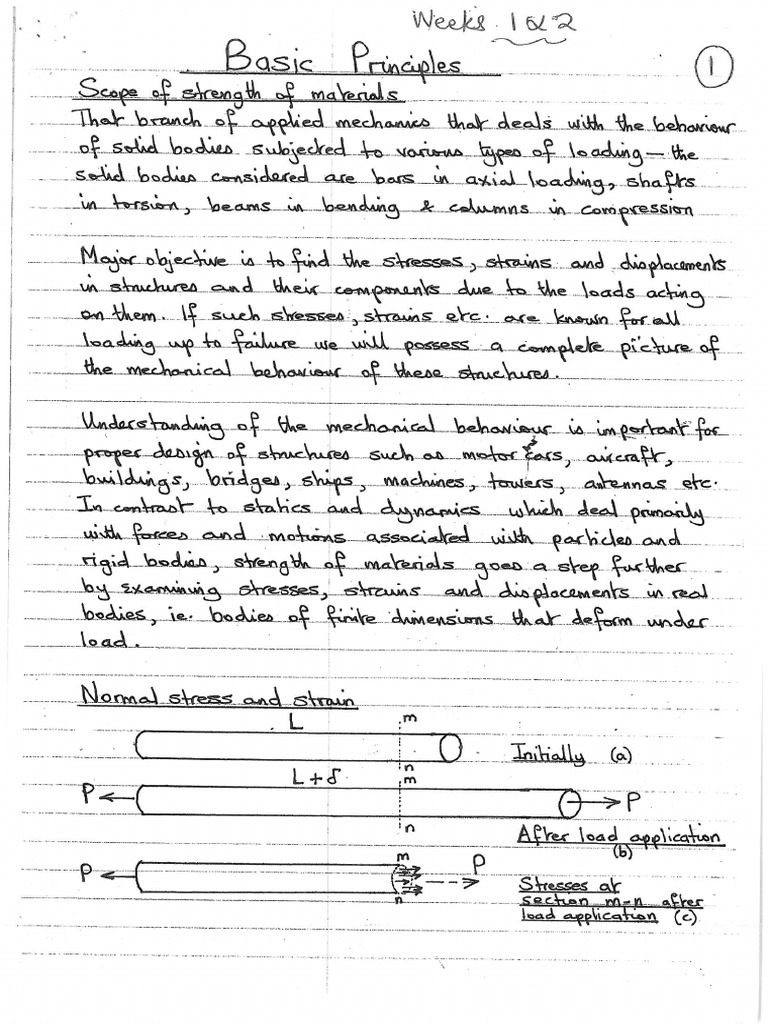 Weeks 1 & 2
Basic Principles
1
Scope of strength of materials
That branch of applied mechanics that deals with the behaviour
of solid bodies subjected to various types of loading — the
solid bodies considered are bars in axial loading, shafts
in torsion, beams in bending & columns in compression
Major objective is to find the stresses, strains and displacements
in structures and their components due to the loads acting
on them. If such stresses, strains etc. are known for all
loading up to failure we will possess a complete picture of
the mechanical behaviour of these structures.
Understanding of the mechanical behaviour is important for
proper design of structures such as motor cars, aircraft,
buildings, bridges, ships, machines, towers, antennas etc.
In contrast to statics and dynamics which deal primarily
with forces and motions associated with particles and
rigid bodies, strength of materials goes a step further
by examining stresses, strains and displacements in real
bodies, ie. bodies of finite dimensions that deform under
load.
Normal stress and strain
L
m
n
Initially (a)
L+δ
m
P
P
n
After load application
(b)
m
P
P
n
Stresses at
section m-n after
load application (c)